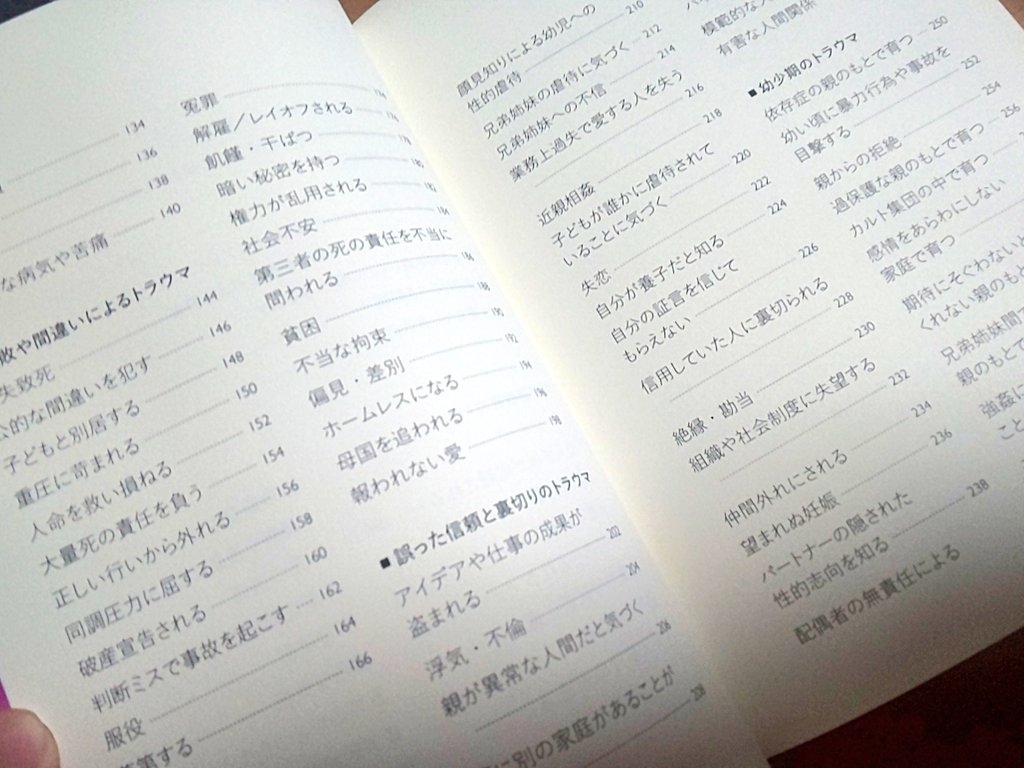 134
136
138
140
な病気や苦痛
敗や間違いによるトラウマ
失致死 144
公的な間違いを犯す 146
子どもと別居する 148
重圧に苛まれる 150
人命を救い損ねる 152
大量死の責任を負う 154
正しい行いから外れる 156
同調圧力に屈する 158
破産宣告される 160
判断ミスで事故を起こす 162
服役 164
166
冤罪
解雇/レイオフされる
飢饉・干ばつ
暗い秘密を持つ
権力が乱用される
社会不安
第三者の死の責任を不当に
問われる
貧困
不当な拘束
偏見・差別
ホームレスになる
母国を追われる
報われない愛 198
■誤った信頼と裏切りのトラウマ
アイデアや仕事の成果が
盗まれる 202
浮気・不倫 204
親が異常な人間だと気づく 206
に別の家庭があることが 208
顔見知りによる幼児への
性的虐待 210
兄弟姉妹の虐待に気づく 212
兄弟姉妹への不信 214
業務上過失で愛する人を失う
216
近親相姦 218
子どもが誰かに虐待されて
いることに気づく 220
失恋 222
自分が養子だと知る 224
自分の証言を信じて
もらえない 226
信用していた人に裏切られる
228
絶縁・勘当 230
組織や社会制度に失望する
232
仲間外れにされる 234
望まれぬ妊娠 236
パートナーの隠された
性的志向を知る 238
配偶者の無責任による
模範的な人
有害な人間関係
■幼少期のトラウマ
依存症の親のもとで育つ 250
幼い頃に暴力行為や事故を
目撃する 252
親からの拒絶 254
過保護な親のもとで育つ 256
カルト集団の中で育つ
感情をあらわにしない
家庭で育つ
期待にそぐわないと
くれない親のも
兄弟姉妹間
親のもとで
強姦に
こと